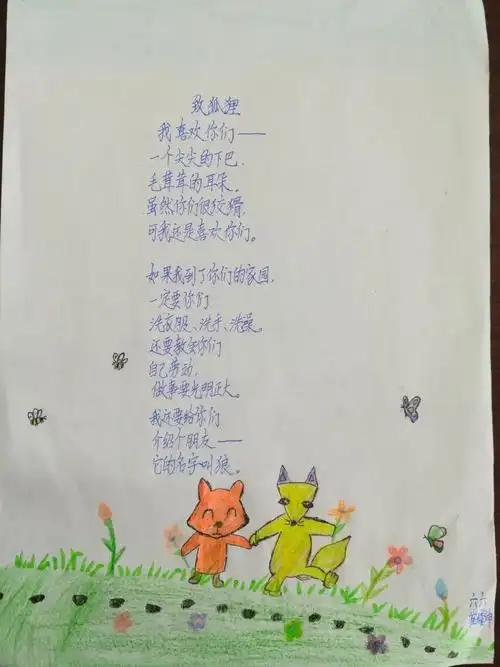 致狐狸
我喜欢你们——
一个尖尖的下巴，
毛茸茸的耳朵。
虽然你们很狡猾，
可我还是喜欢你们。
如果我到了你们的家园，
一定要你们
洗衣服、洗手、洗澡。
还要教会你们
自己劳动，
做事要光明正大。
我还要给你们
介绍个朋友——
它的名字叫狼。
六六